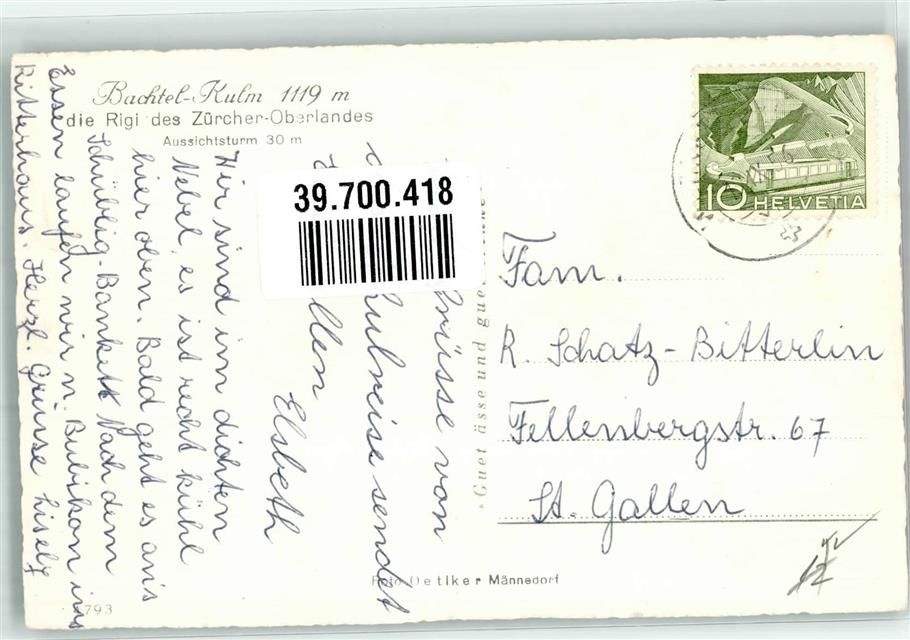 Bachtel-Kulm 1119 m
die Rigi des Zürcher-Oberlandes
Aussichtsturm 30 m
10 HELVETIA
39.700.418
rüsse von
ulreise sendet
llen
Elsbeth
Wir sind im dichten
Nebel, es ist recht kühl
hier oben. Bald geht es an's
Schüblig-Bankett. Nach dem
Essen laufen wir n. Bubikon ins
Ritterhaus. Herzl. Grüsse Lisely
Guet ässe und gue
Fam.
R. Schatz-Bitterlin
Fellenbergstr. 67
St. Gallen
Foto Oetiker Männedorf
793